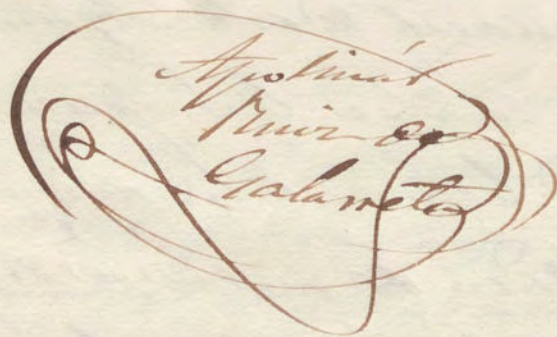 Apolinár
Ruiz de
Galarreta